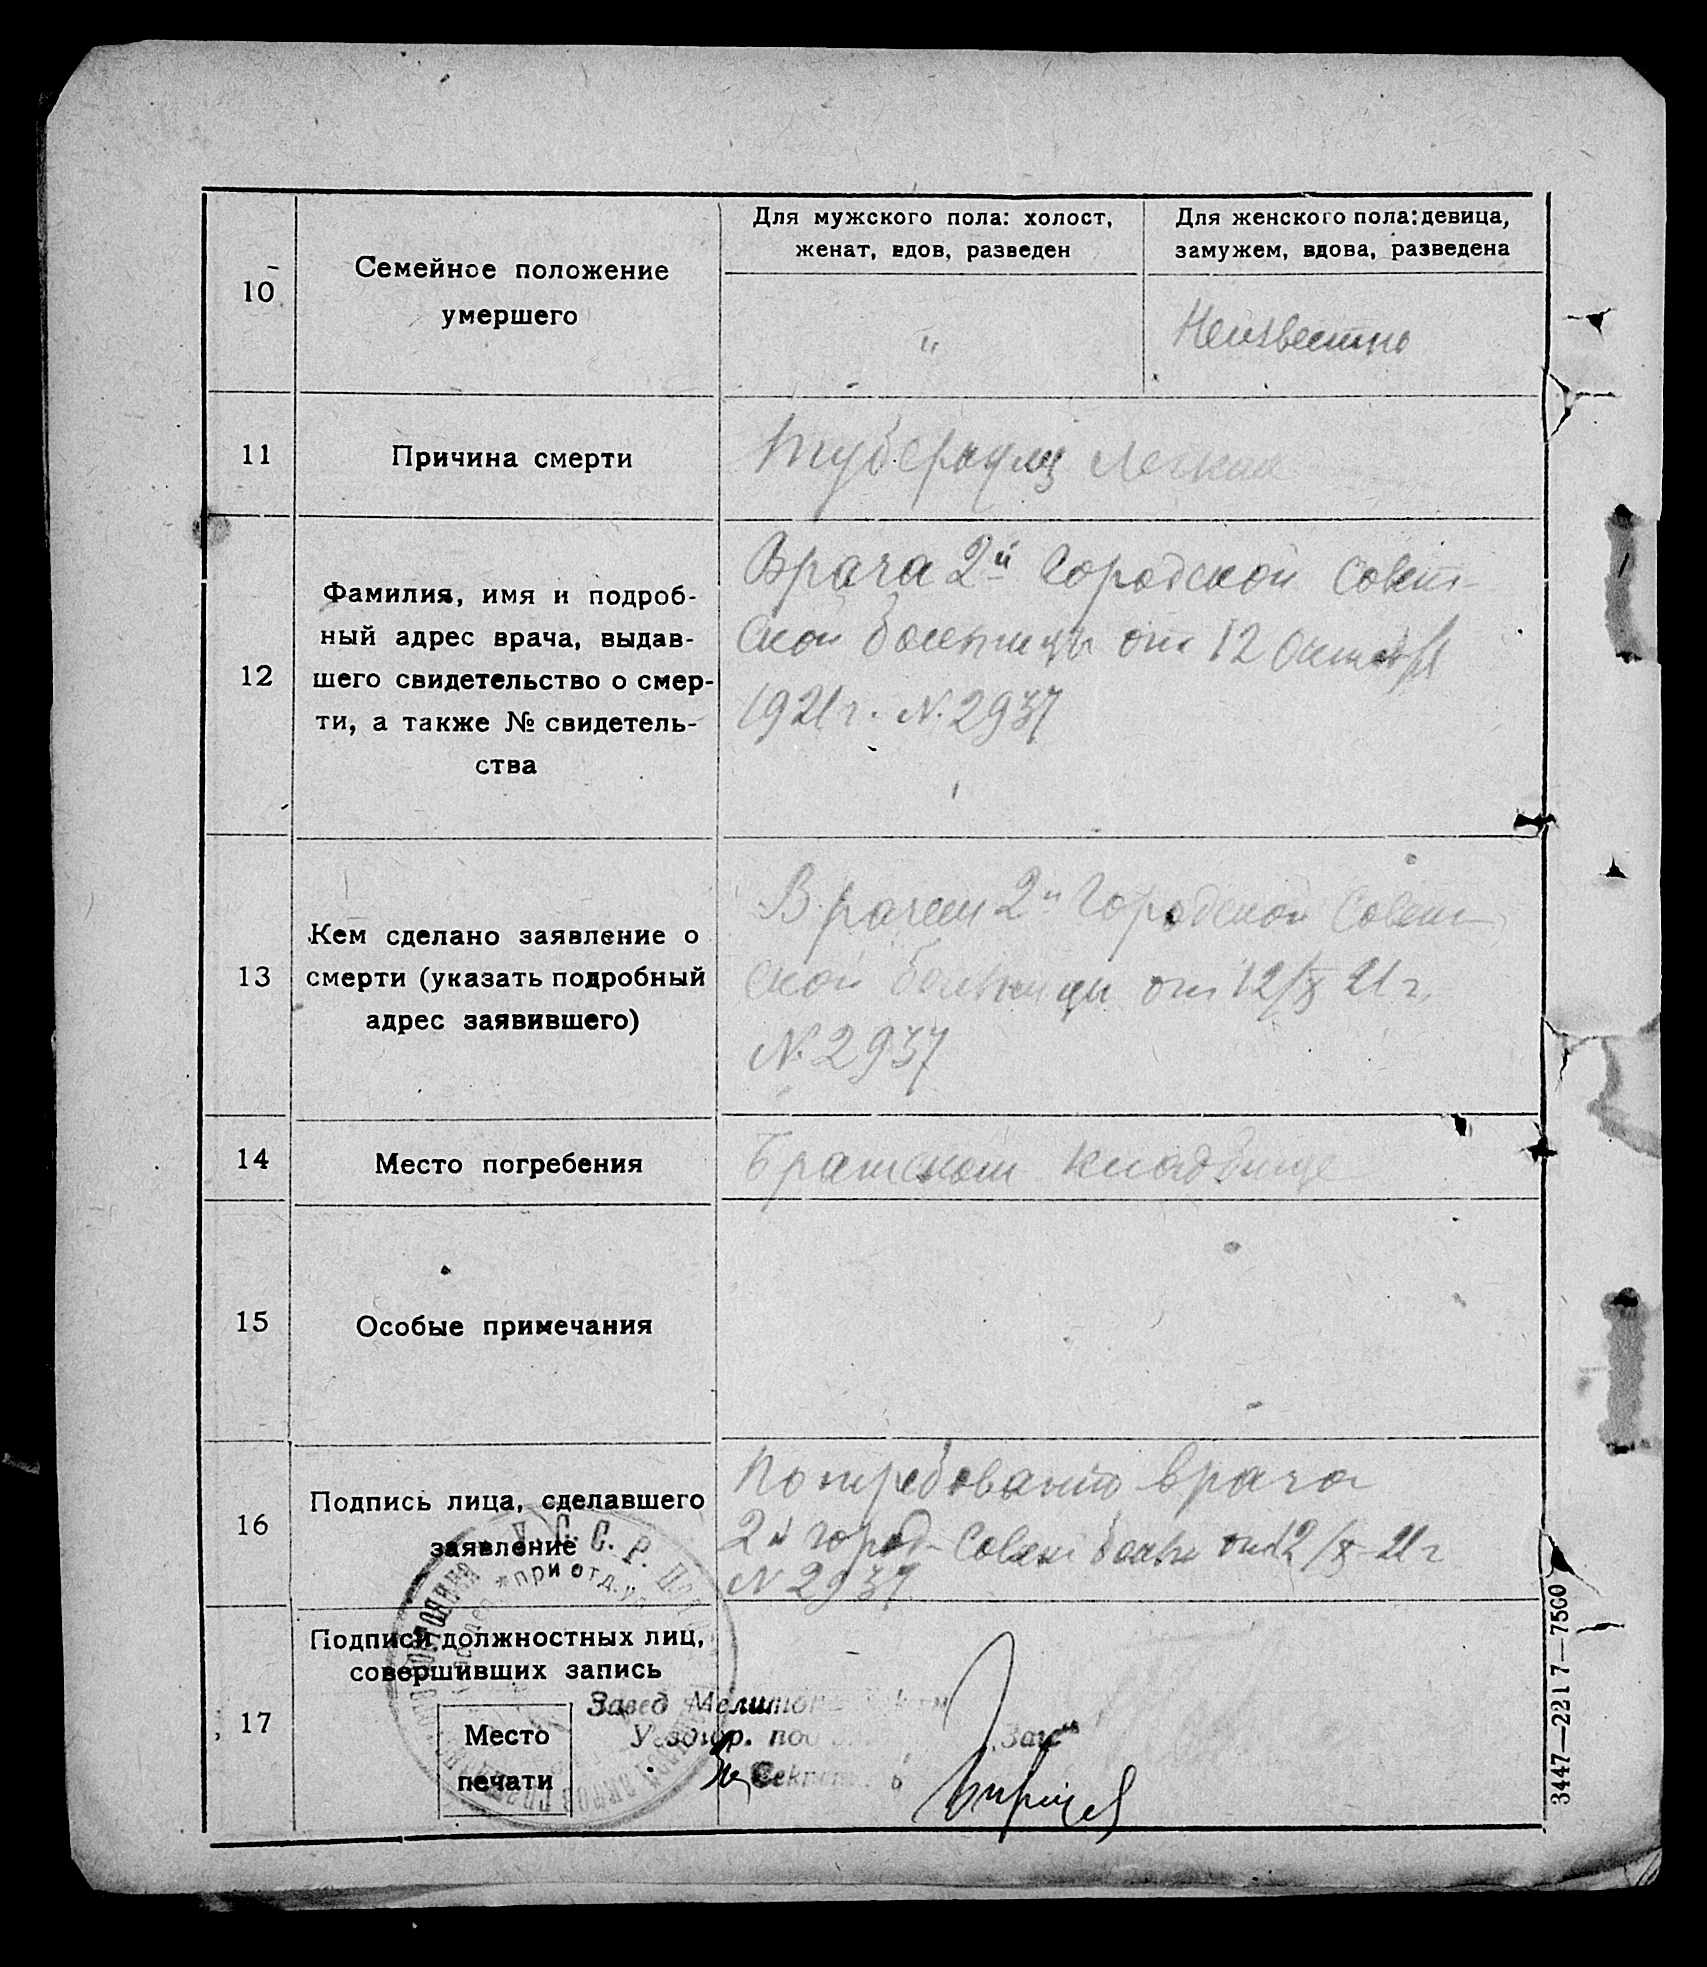 10
Семейное положение
умершего
Для мужского пола: холост,
женат, вдов, разведен
Для женского пола: девица,
замужем, вдова, разведена
"
Неизвестно
11
Причина смерти
Туберкулез легких
12
Фамилия, имя и подроб-
ный адрес врача, выдав-
шего свидетельство о смер-
ти, а также № свидетель-
ства
Врача 2й Городской Совет-
ской больницы от 12 Октября
1921 г. N. 2937
13
Кем сделано заявление о
смерти (указать подробный
адрес заявившего)
Врачем 2й Городской Совет-
ской больницы от 12/X 21 г.
N. 2937
14
Место погребения
Братском кладбище
15
Особые примечания
16
Подпись лица, сделавшего
заявление
По требованию врача
2й город. Совет больн от 12/X-21 г
N 2937
17
Подписи должностных лиц,
совершивших запись
Место
печати
У. С. С. Р.
при отд. уп
Завед Мелитоп
Уездгор. под
Загс
Секрет
3447—2217—7500